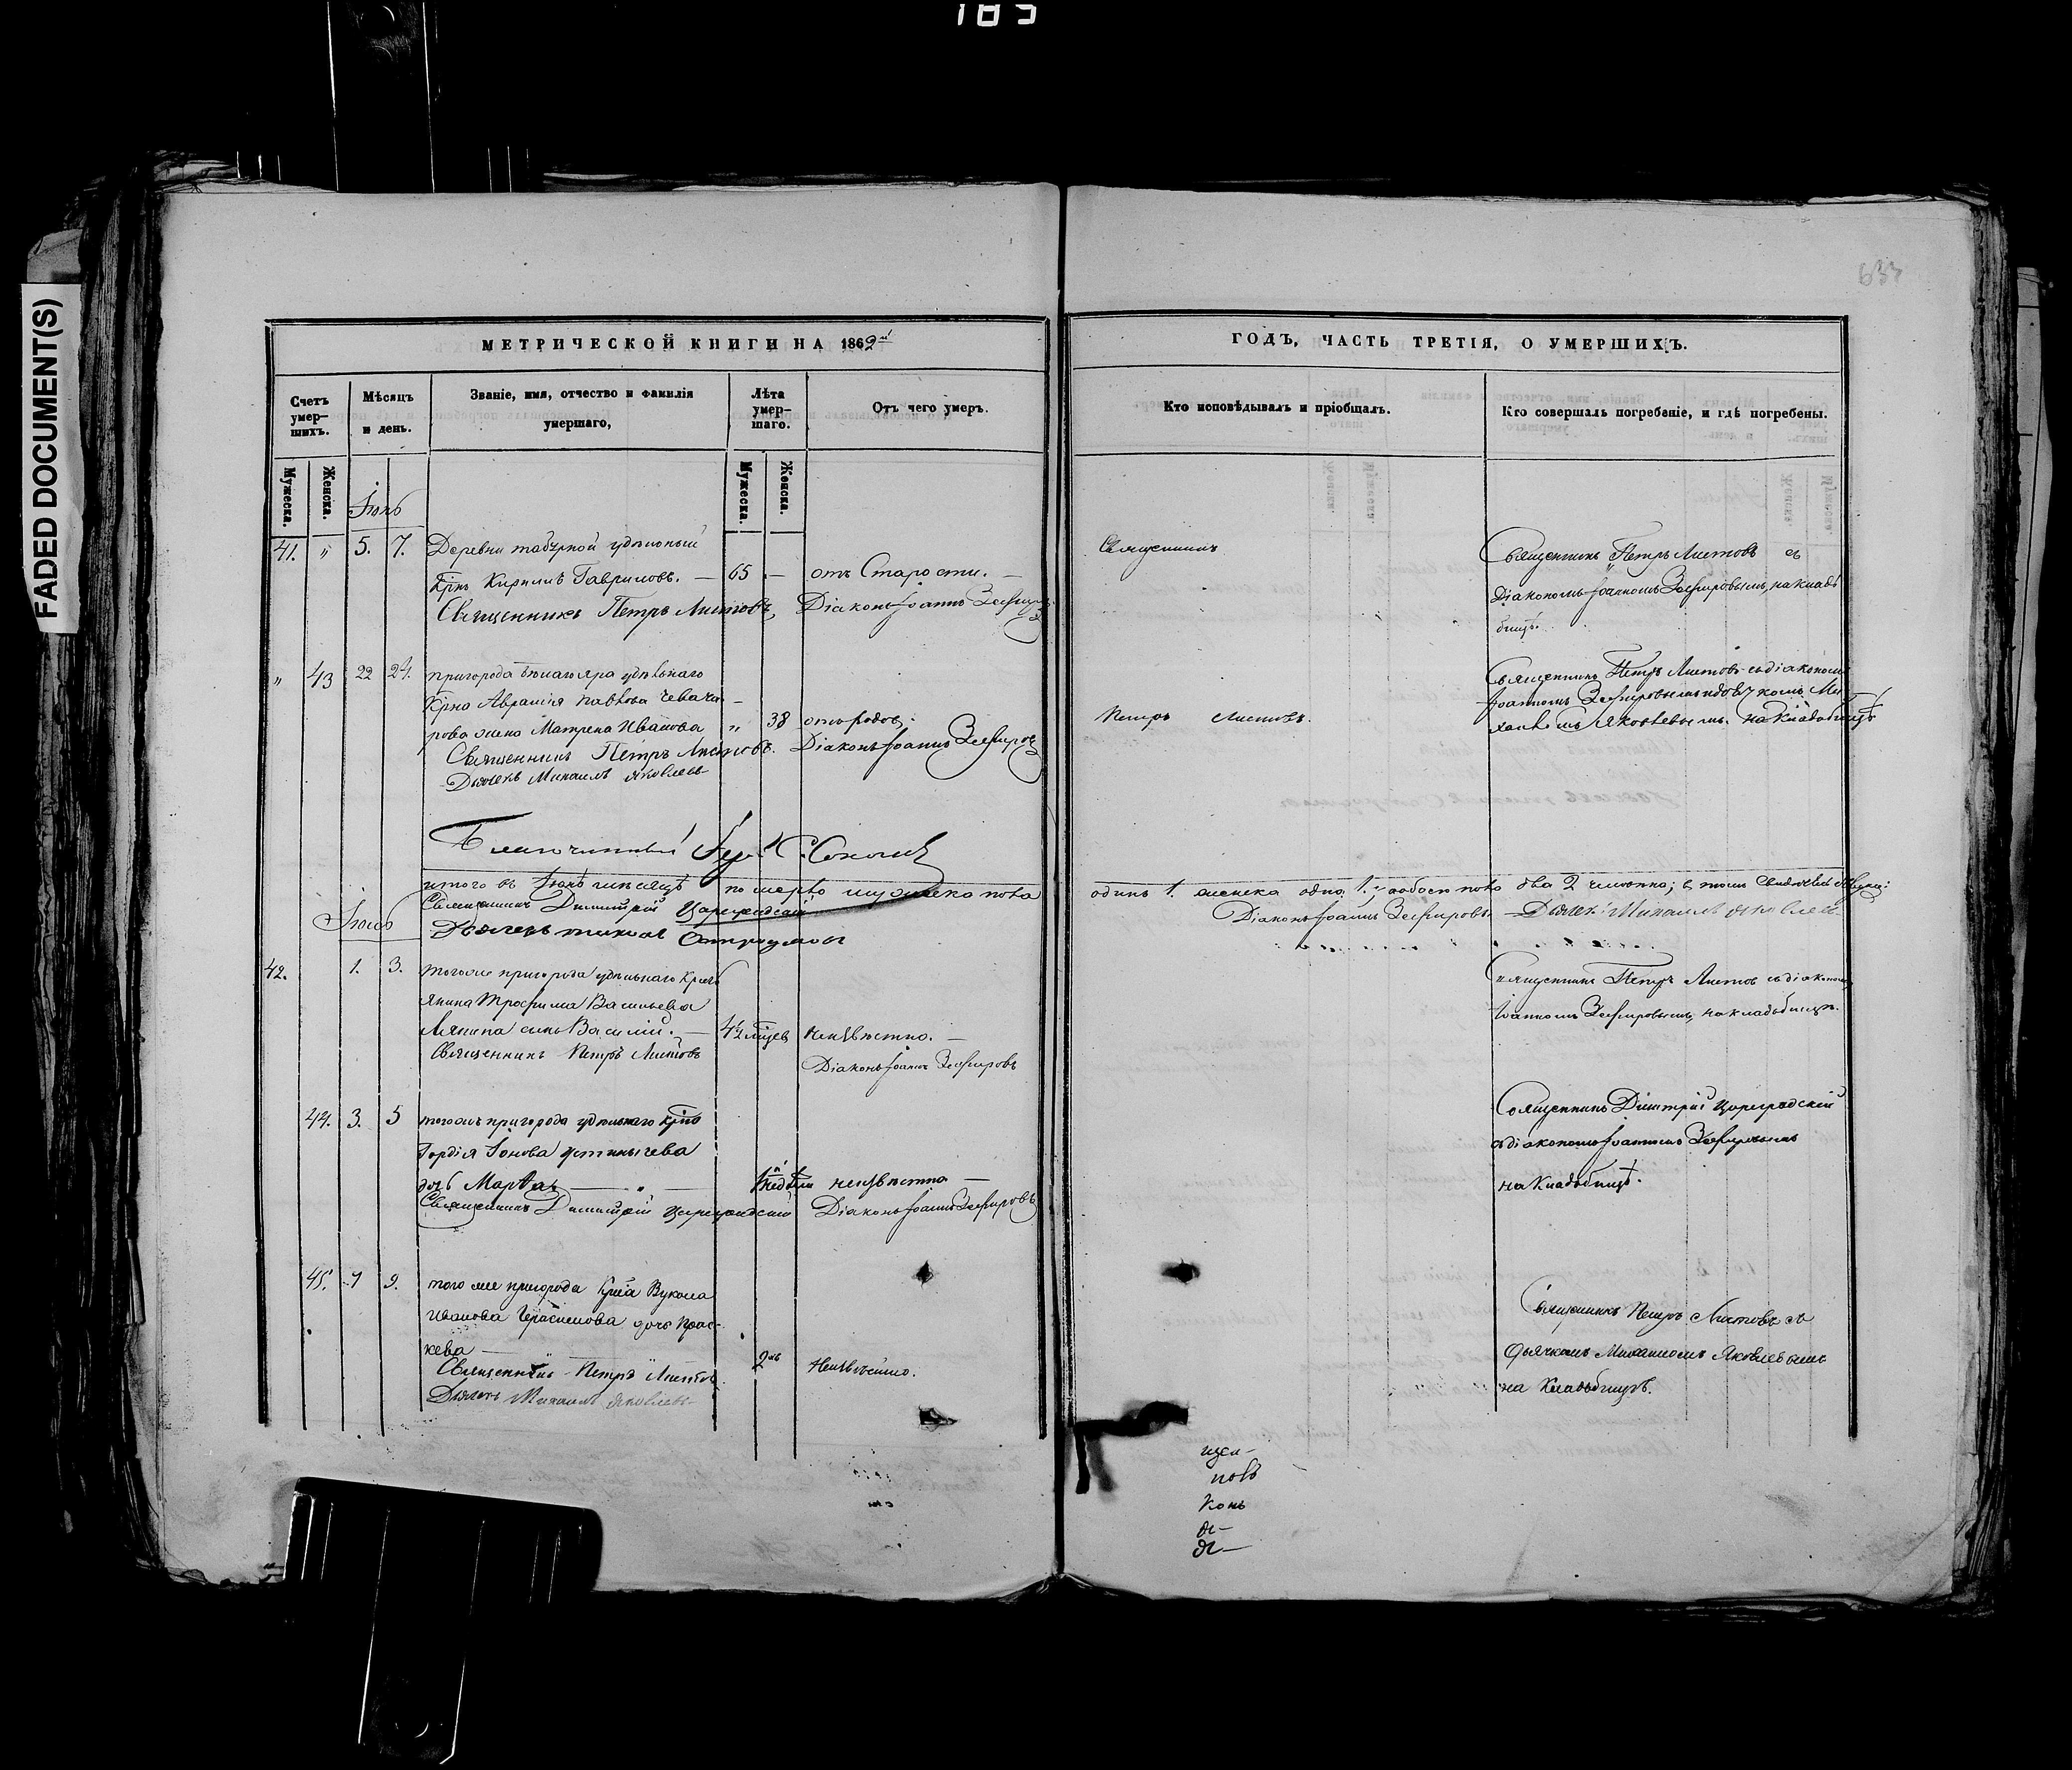 185
FADED DOCUMENT(S)
МЕТРИЧЕСКОЙ КНИГИ НА 1862й
Счетъ умер- шихъ.
Мѣсяцъ и день.
Званіе, имя, отчество и фамилія умершаго,
Лѣта умер- шаго.
Отъ чего умеръ.
Мужеска.
Женска.
Мужеска.
Женска.
Іюнь
41. " 5. 7. Деревни удѣльный
Крнъ Кирилъ Гавриловъ. — 65 — отъ Старости. —
Священникъ Петръ Листовъ Діаконъ Іоаннъ Зефировъ
" 43 22 24. пригорода Бѣлаго яра удѣльнаго
Крна Авраамія Павлова
рова жена Матрена Иванова " 38 отъ родов.
Священникъ Петръ Листовъ. Діаконъ Іоаннъ Зефировъ
Дьячекъ Михаилъ Яковлевъ
Благочинный С. Соколов
итого въ Іюнѣ мѣсяцѣ померло мужеска пола
Священникъ Димитрій Цареградскій
Іюль
Дьячекъ
42. 1. 3. тогоже пригорода удѣльнаго Крест
янина Трофима Васильева
Лянина сынъ Василій. — 4½ мцев неизвѣстно. —
Священникъ Петръ Листовъ
Діаконъ Іоаннъ Зефировъ
44. 3. 5 тогожъ пригорода удѣльнаго крна
Гордія Іонова Устинычева
дочь Марѳа — " — 1 недѣли неизвѣстно —
Священникъ Димитрій Цареградскій Діаконъ Іоаннъ Зефировъ
45. 7 9. того же пригорода Крна Вукола
Иванова Герасимова дочь Прас-
кева —
2 неизвѣстно.
Священникъ Петръ Листовъ
Дьячекъ Михаилъ Яковлевъ
633
ГОДЪ, ЧАСТЬ ТРЕТІЯ, О УМЕРШИХЪ.
Кто исповѣдывалъ и пріобщалъ.
Кто совершалъ погребеніе, и гдѣ погребены.
Священникъ
Священникъ Петръ Листовъ съ
Діакономъ Іоанномъ Зефировымъ, на клад
бищѣ.
Петръ Листовъ.
Священникъ Петръ Листовъ съ діакономъ
Іоанномъ Зефировымъ и дьячкомъ Ми
хаиломъ Яковлевымъ. на Кладбищѣ
одинъ 1. женска одна 1. обоего пола два 2 человека;
Діаконъ Іоаннъ Зефировъ. Дьячек Михаилъ Яковлев
Священникъ Петръ Листов съ діакономъ
Іоанномъ Зефировымъ, на кладбищѣ.
Священникъ Дімитрій Цареградскій
съ діакономъ Іоанномъ Зефировымъ
на Кладбищѣ.
Священникъ Петръ Листовъ съ
Дьячкомъ Михаиломъ Яковлевымъ
на Кладбищѣ.
щен-
новъ
конъ